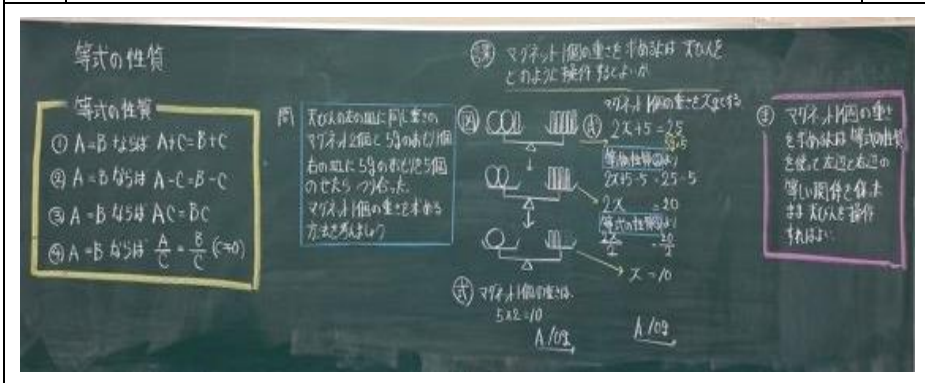 等式の性質
等式の性質
① A=B ならば A+C=B+C
② A=B ならば A-C=B-C
③ A=B ならば AC=BC
④ A=B ならば A/C = B/C (C≠0)
問
天びんの左の皿に同じ重さの
マグネット2個と5gのおもり1個
右の皿に5gのおもりを5個
のせたらつり合った。
マグネット1個の重さを求める
方法を考えましょう
課 マグネット1個の重さを求めるには 天びんを
どのように操作するとよいか
図
マグネット1個の重さをxgとする
2x+5=25
等式の性質②より
2x+5-5=25-5
2x =20
等式の性質④より
2x/2 = 20/2
x=10
式 マグネット1個の重さは、
5×2=10
A 10g
A 10g
ま マグネット1個の重さ
を求めるには 等式の性質
を使って左辺と右辺の
等しい関係を保った
まま 天びんを操作
すればよい